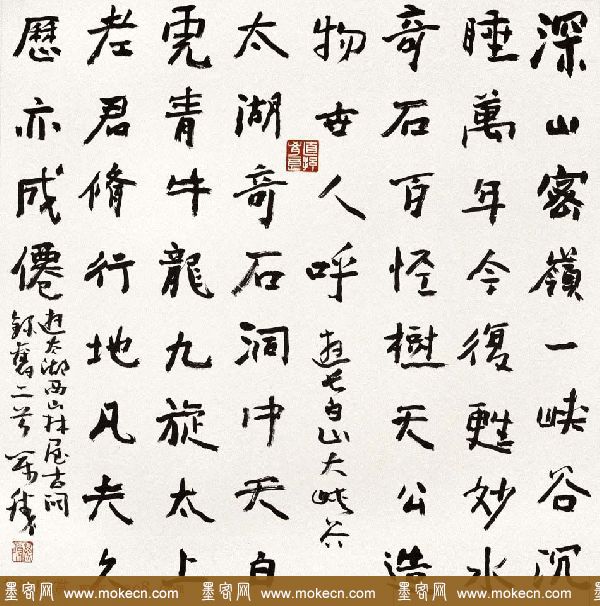 深山密嶺一峽谷沉
睡萬年今復甦妙水
奇石百怪樹天公造
物世人呼
遊长白山大峡谷
太湖奇石洞中天白
虎青牛龍九旋太上
老君脩行地凡夫久
歷亦成僊
遊太湖西山林屋古洞
錄舊二首
墨客网 www.mokecn.com 墨客网 www.mokecn.com 墨客网 www.mokecn.com 墨客网 www.mokecn.com